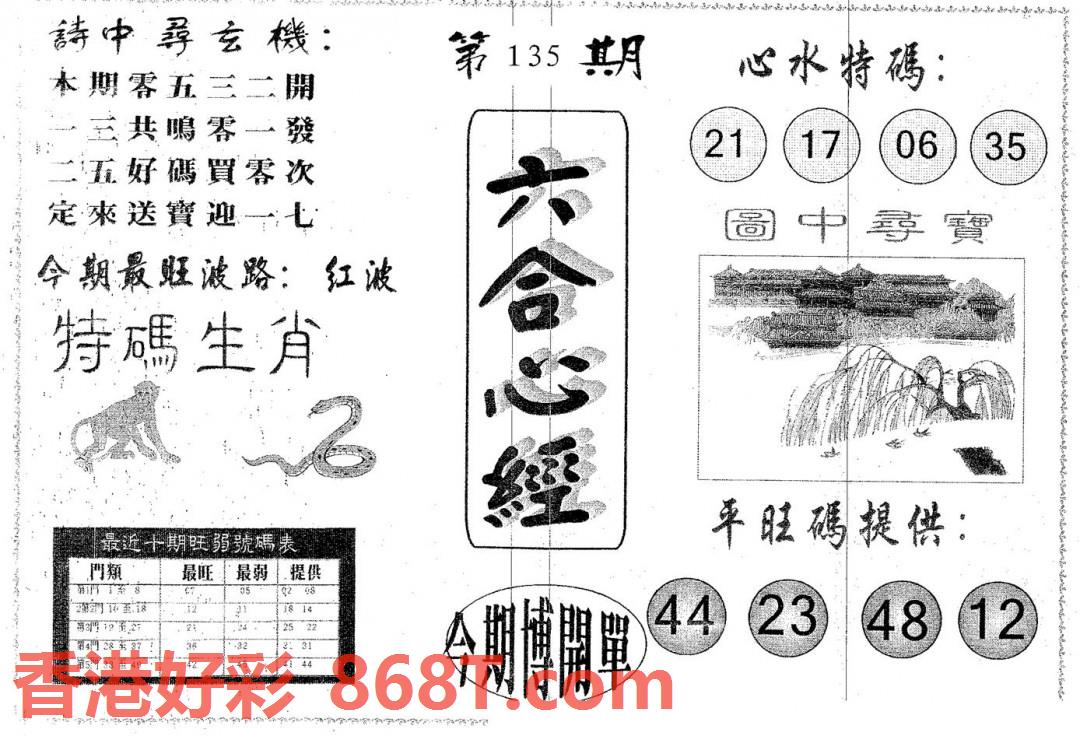 詩中尋玄機：
本期零五三二開
一三共鳴零一發
二五好碼買零次
定來送寶迎一七
今期最旺波路：紅波
特碼生肖
最近十期旺弱號碼表
門類 最旺 最弱 提供
第1門 1 至 8 07 05 02 08
第2門 10 至 18 12 11 18 14
第3門 19 至 27 24 25 22
第4門 28 至 37 36 32 31
第5門 38 至 49 42 41 44
第135期
六合心經
今期博開單
心水特碼：
21 17 06 35
圖中尋寶
平旺碼提供：
44 23 48 12
香港好彩 868T.com